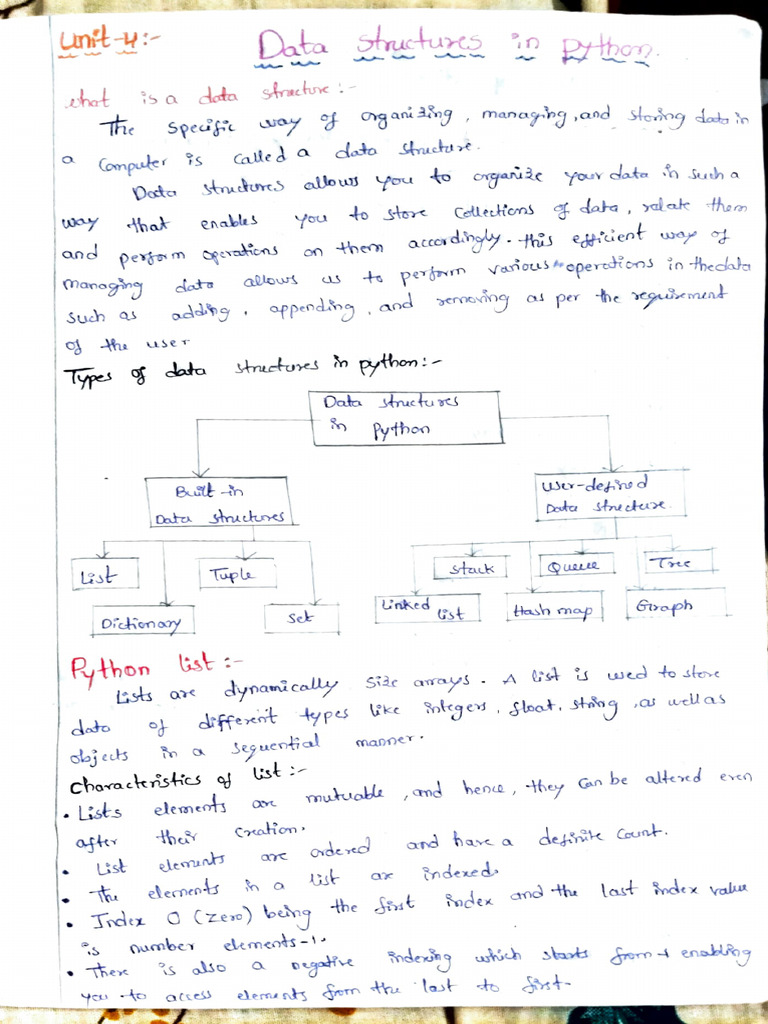 Unit-4:- Data structures in python.
what is a data structure:-
The specific way of organizing, managing, and storing data in
a computer is called a data structure.
Data structures allows you to organize your data in such a
way that enables you to store collections of data, relate them
and perform operations on them accordingly. this efficient way of
managing data allows us to perform various operations in the data
such as adding, appending, and removing as per the requirement
of the user
Types of data structures in python:-
Data structures
in Python
Built-in
Data structures
User-defined
Data structure.
List
Tuple
Stack
Queue
Tree
Dictionary
Set
Linked
list
Hash map
Graph
Python list:-
Lists are dynamically size arrays. A list is used to store
data of different types like integers, float, string, as well as
objects in a sequential manner.
characteristics of list:-
• Lists elements are mutuable, and hence, they can be altered even
after their creation.
• List elements are ordered and have a definite count.
• The elements in a list are indexed.
• Index 0 (zero) being the first index and the last index value
is number elements-1.
• There is also a negative indexing which starts from -1 enabling
you to access elements from the last to first.